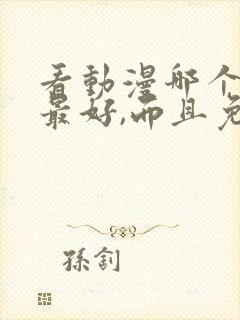 看動漫哪个
最好,而且免
孫釗